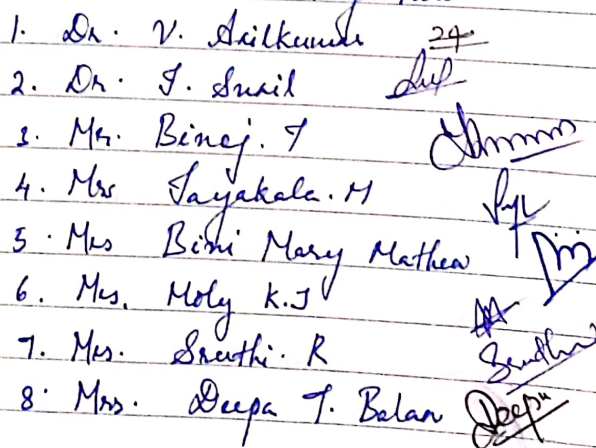 1. Dr. V. Anilkumar 24
2. Dr. J. Sunil
3. Mr. Binoj. T
4. Mrs Jayakala. M
5. Mrs Bini Mary Mathew
6. Mrs. Moly K.J
7. Mrs. Sruthi. R
8. Mrs. Deepa T. Balan Deepa